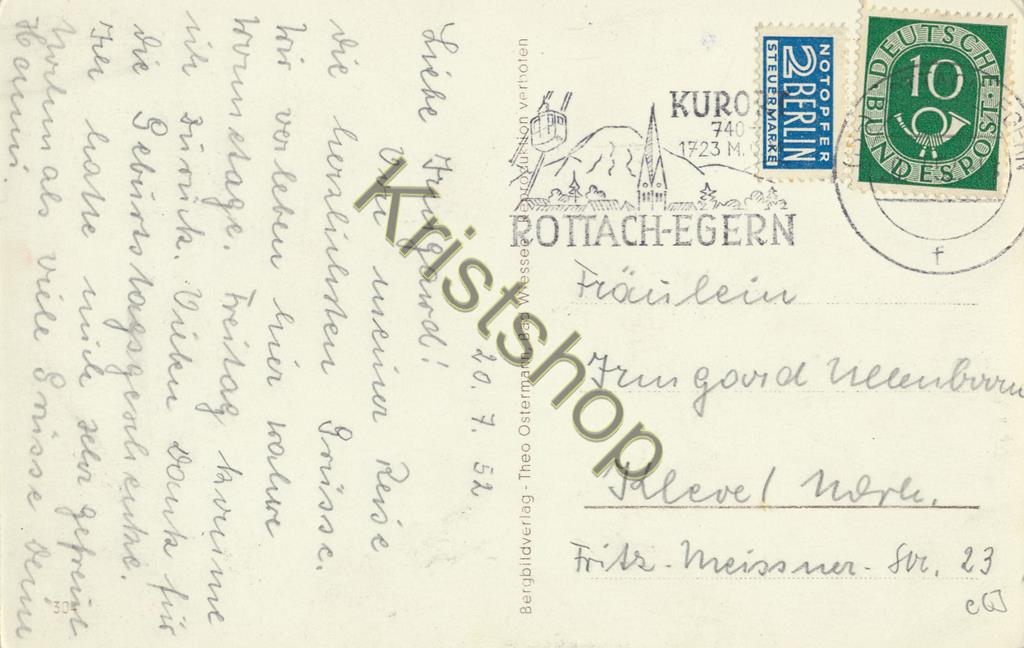 20. 7. 52
Liebe Irmgard!
Von meiner Reise
die herzlichsten Grüsse.
Wir verleben hier wahre
Wonnetage. Freitag komme
ich zurück. Vielen Dank für
die Geburtstagsgeschenke.
Ich habe mich sehr gefreut.
Nochmals viele Grüsse Deine
Hanni.
30
Bergbildverlag - Theo Ostermann, Bad Wiessee Reproduktion verboten
KURORT
740-
1723 M.
ROTTACH-EGERN
NOTOPFER
2 BERLIN
STEUERMARKE
DEUTSCHE
10
BUNDESPOST
EGERN
f
Fräulein
Irmgard
Kleve / Ndrh.
Fritz-Meissner-Str. 23
Kristshop